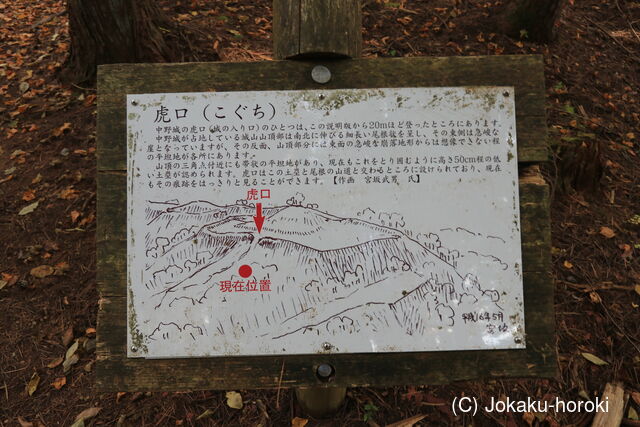 虎口（こぐち）
中野城の虎口（城の入り口）のひとつは、この説明版から20mほど登ったところにあります。
中野城が占地している城山山頂部は南北に伸びる細長い尾根状を呈し、その東側は急峻な
崖となっていますが、その反面、山頂部分には東面の急峻な崩落地形からは想像できない程
の平坦地が各所にあります。
山頂の三角点付近にも帯状の平坦地があり、現在もこれをとり囲むように高さ50cm程の低
い土塁が認められます。虎口はこの土塁と尾根の山道と交わるところに設けられており、現在
もその痕跡をはっきりと見ることができます。【作画 宮坂武男 氏】
虎口
現在位置
平成16年5月
宮坂
(C) Jokaku-horoki